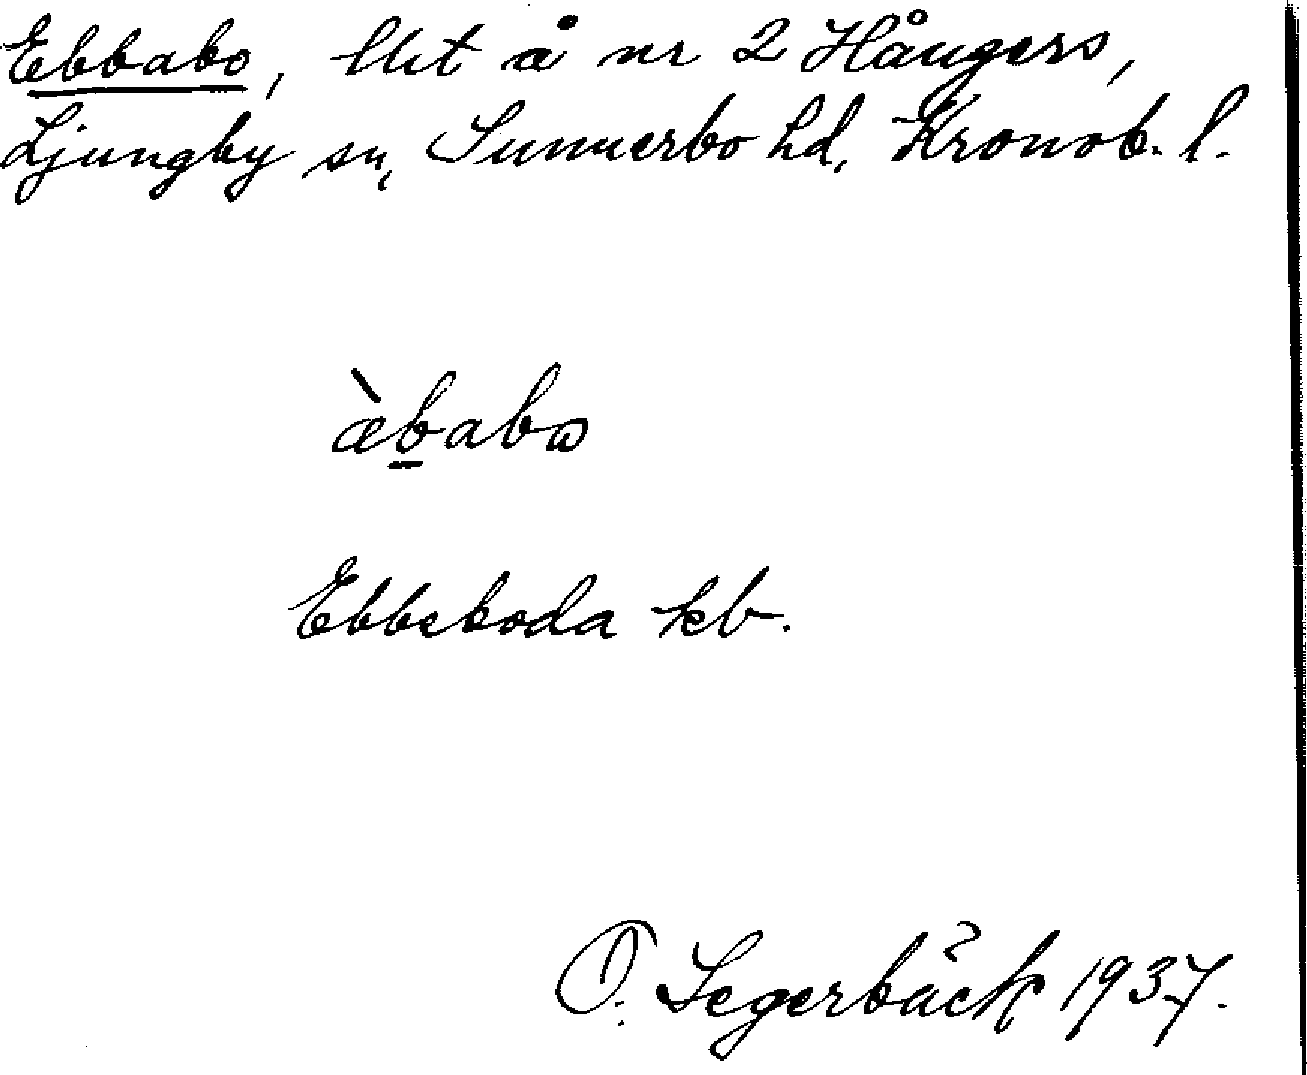 Ebbabo, lht å nr 2 Hångers,
Ljungby sn, Sunnerbo hd, Kronob. l.
æ̀b̲abω
Ebbeboda kb.
O. Segerbäck 1937.